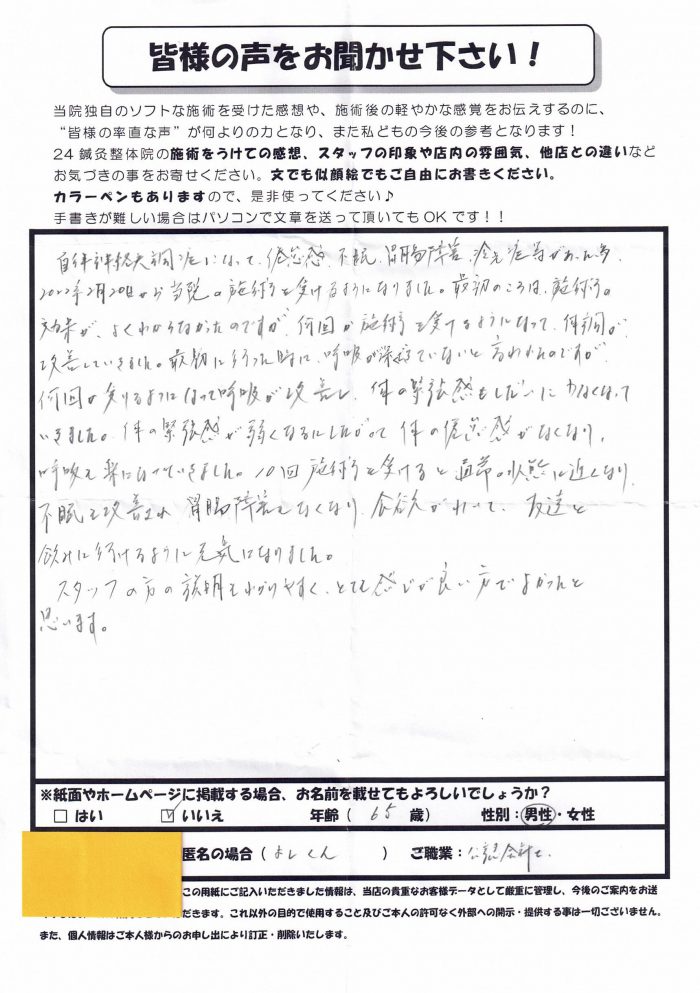 皆様の声をお聞かせ下さい！
当院独自のソフトな施術を受けた感想や、施術後の軽やかな感覚をお伝えするのに、
“皆様の率直な声”が何よりの力となり、また私どもの今後の参考となります！
24鍼灸整体院の施術をうけての感想、スタッフの印象や店内の雰囲気、他店との違いなど
お気づきの事をお寄せください。文でも似顔絵でもご自由にお書きください。
カラーペンもありますので、是非使ってください♪
手書きが難しい場合はパソコンで文章を送って頂いてもOKです！！
自律神経失調症になって、倦怠感、不眠、胃腸障害、冷え症等があった為、
2022年2月20日から当院の施術を受けるようになりました。最初のころは、施術の
効果が、よくわからなかったのですが、何回か施術を受けるようになって、体調が
改善していきました。最初に行った時に、呼吸が深くていないと言われたのですが
何回か受けるようになって呼吸が改善し、体の緊張感もしだいになくなって
いきました。体の緊張感が弱くなるにしたがって体の倦怠感がなくなり、
呼吸も楽になっていきました。10回施術を受けると通常の状態に近くなり、
不眠も改善され 胃腸障害もなくなり、食欲がわいて、友達と
飲みに行けるように元気になりました。
スタッフの方の説明もわかりやすく、とても感じが良い方でよかったと
思います。
※紙面やホームページに掲載する場合、お名前を載せてもよろしいでしょうか？
□ はい ☑ いいえ 年齢（ 65 歳） 性別：男性・女性
匿名の場合（よしくん ） ご職業：公認会計士
この用紙にご記入いただきました情報は、当店の貴重なお客様データとして厳重に管理し、今後のご案内をお送
だきます。これ以外の目的で使用すること及びご本人の許可なく外部への開示・提供する事は一切ございません。
また、個人情報はご本人様からのお申し出により訂正・削除いたします。